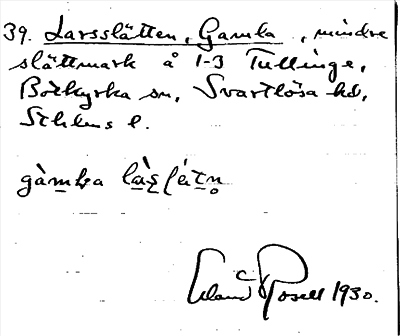 39. Larsslätten, Gamla, mindre
slåttmark å 1-3 Tullinge,
Botkyrka sn, Svartlösa hd,
Sthlms l.
gàmla
Erland Rosell 1930.